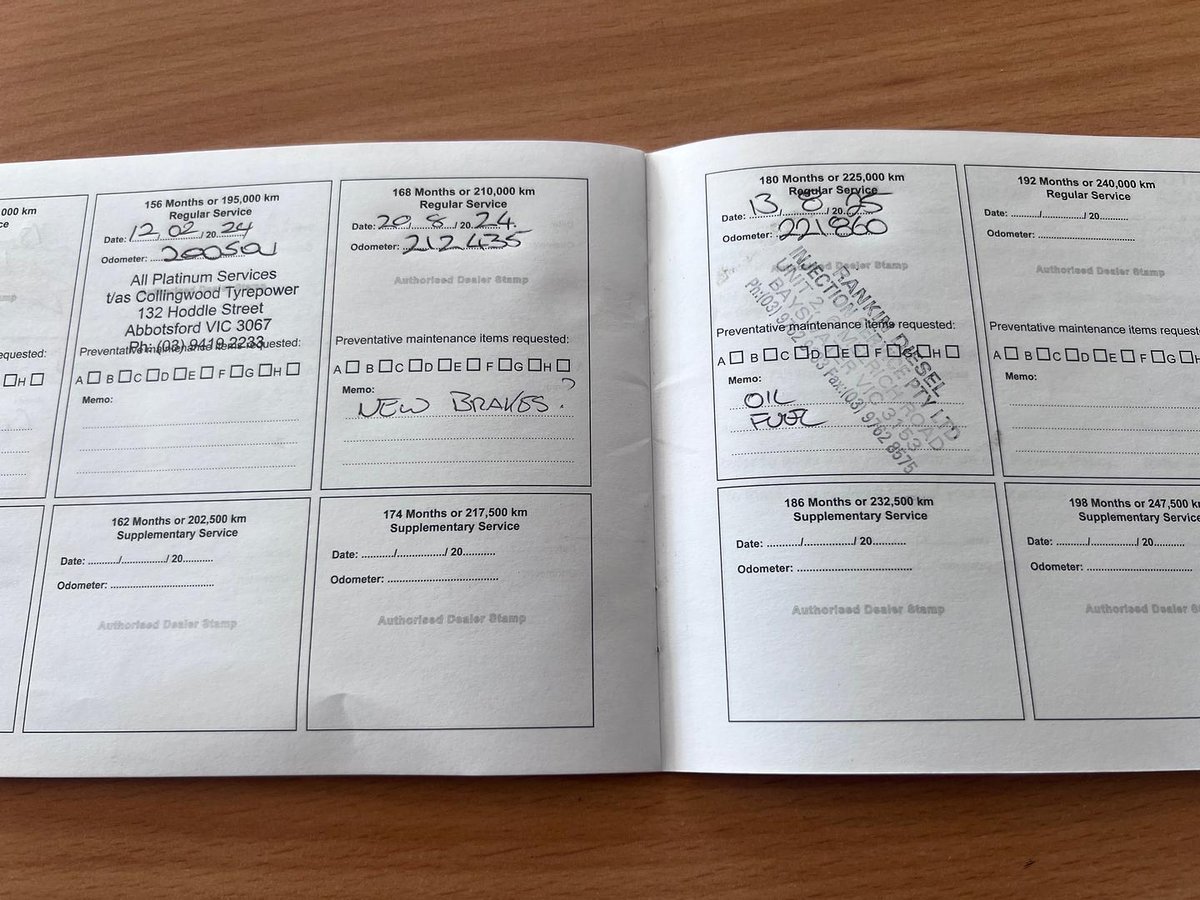 000 km
ce
equested:
H
156 Months or 195,000 km
Regular Service
Date: 12/02/20 24
Odometer: 200501
All Platinum Services
t/as Collingwood Tyrepower
132 Hoddle Street
Abbotsford VIC 3067
Ph: (03) 9419 2233
Preventative maintenance items requested:
A B C D E F G H
Memo:
168 Months or 210,000 km
Regular Service
Date: 20/8/20 24.
Odometer: 212435
Authorised Dealer Stamp
Preventative maintenance items requested:
A B C D E F G H
Memo:
NEW BRAKES?
162 Months or 202,500 km
Supplementary Service
Date: ........../................/ 20...........
Odometer: ...................................
Authorised Dealer Stamp
174 Months or 217,500 km
Supplementary Service
Date: ........../................/ 20...........
Odometer: ...................................
Authorised Dealer Stamp
180 Months or 225,000 km
Regular Service
Date: 13/8/20 25
Odometer: 221860
Authorised Dealer Stamp
RANKIN DIESEL
INJECTION SERVICE PTY LTD
UNIT 2, ROAD
BAYSWATER VIC 3153
Ph:(03) 9762 Fax:(03) 9762 8575
Preventative maintenance items requested:
A B C D E F G H
Memo:
OIL
FUEL
192 Months or 240,000 km
Regular Service
Date: ........../................/ 20...........
Odometer: ...................................
Authorised Dealer Stamp
Preventative maintenance items reques
A B C D E F G H
Memo:
186 Months or 232,500 km
Supplementary Service
Date: ........../................/ 20...........
Odometer: ...................................
Authorised Dealer Stamp
198 Months or 247,500 k
Supplementary Service
Date: ........../................/ 20...........
Odometer: ...................................
Authorised Dealer S